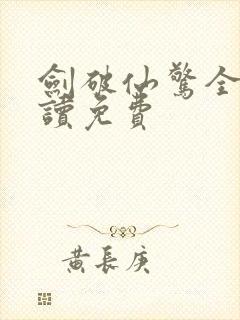 劍破仙驚全
讀免費
黃長庚